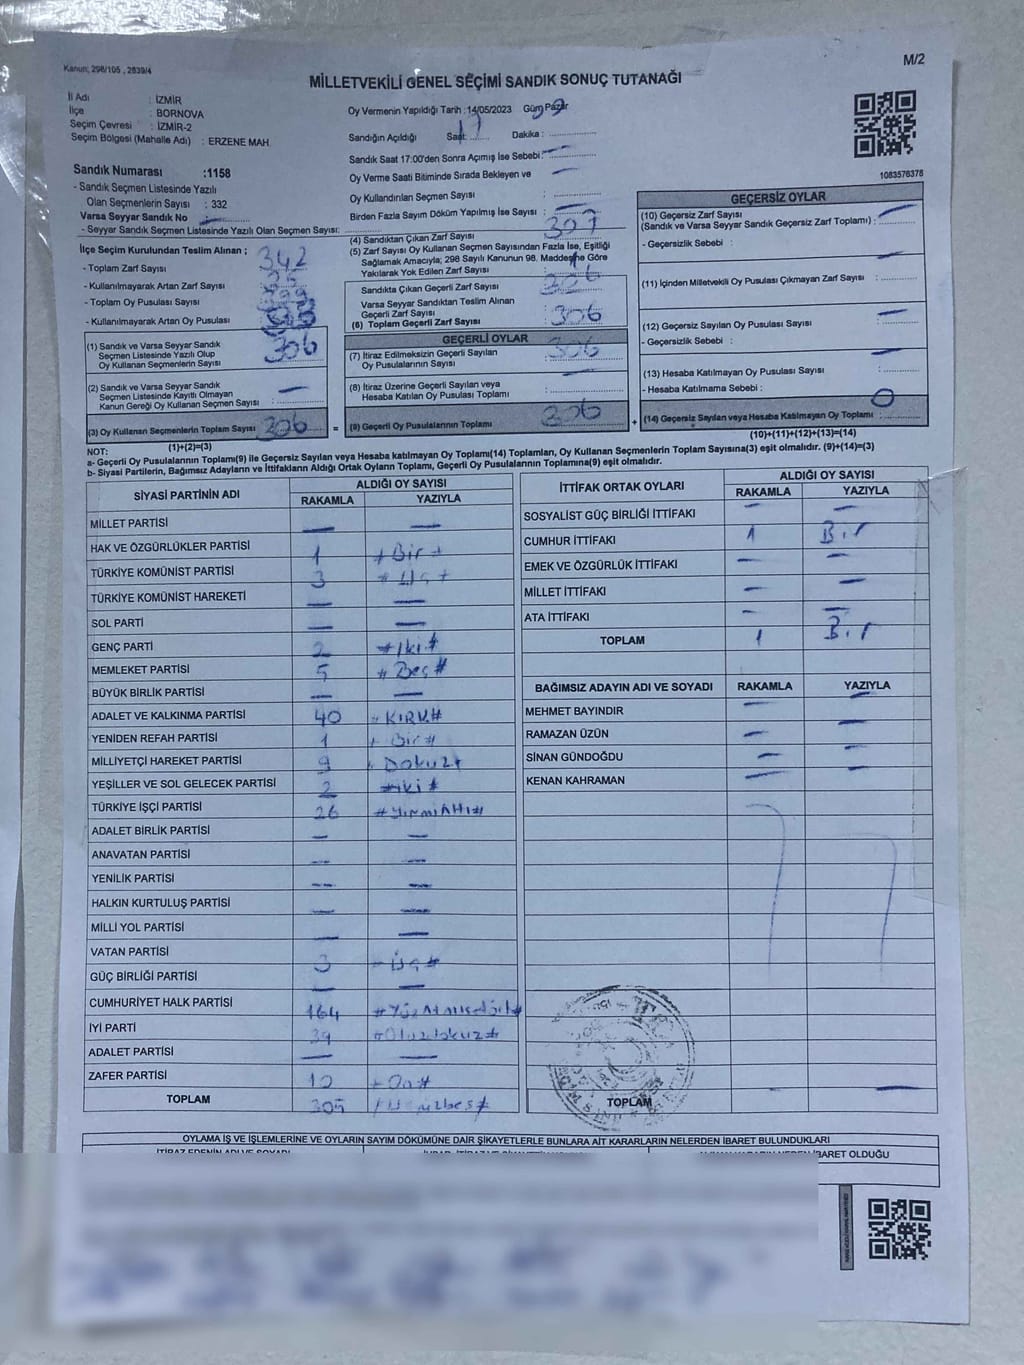 Kanun; 298/105 , 2839/4
M/2
MİLLETVEKİLİ GENEL SEÇİMİ SANDIK SONUÇ TUTANAĞI
İl Adı : İZMİR
İlçe : BORNOVA
Seçim Çevresi : İZMİR-2
Seçim Bölgesi (Mahalle Adı) : ERZENE MAH.
Oy Vermenin Yapıldığı Tarih : 14/05/2023 Gün: Pazar
Sandığın Açıldığı Saat: 17 Dakika :
Sandık Saat 17:00'den Sonra Açımış İse Sebebi: —
Oy Verme Saati Bitiminde Sırada Bekleyen ve
Oy Kullandırılan Seçmen Sayısı : —
Birden Fazla Sayım Döküm Yapılmış İse Sayısı : —
1083576376
Sandık Numarası :1158
- Sandık Seçmen Listesinde Yazılı
Olan Seçmenlerin Sayısı : 332
Varsa Seyyar Sandık No —
- Seyyar Sandık Seçmen Listesinde Yazılı Olan Seçmen Sayısı:
İlçe Seçim Kurulundan Teslim Alınan ;
- Toplam Zarf Sayısı 342
- Kullanılmayarak Artan Zarf Sayısı
- Toplam Oy Pusulası Sayısı
- Kullanılmayarak Artan Oy Pusulası
(1) Sandık ve Varsa Seyyar Sandık
Seçmen Listesinde Yazılı Olup
Oy Kullanan Seçmenlerin Sayısı 306
(2) Sandık ve Varsa Seyyar Sandık
Seçmen Listesinde Kayıtlı Olmayan
Kanun Gereği Oy Kullanan Seçmen Sayısı : —
(3) Oy Kullanan Seçmenlerin Toplam Sayısı 306
(1)+(2)=(3)
(4) Sandıktan Çıkan Zarf Sayısı 307
(5) Zarf Sayısı Oy Kullanan Seçmen Sayısından Fazla İse, Eşitliği
Sağlamak Amacıyla; 298 Sayılı Kanunun 98. Maddesine Göre
Yakılarak Yok Edilen Zarf Sayısı : 1
Sandıkta Çıkan Geçerli Zarf Sayısı 306
Varsa Seyyar Sandıktan Teslim Alınan
Geçerli Zarf Sayısı :
(6) Toplam Geçerli Zarf Sayısı 306
GEÇERLİ OYLAR
(7) İtiraz Edilmeksizin Geçerli Sayılan
Oy Pusulasının Sayısı 306
(8) İtiraz Üzerine Geçerli Sayılan veya
Hesaba Katılan Oy Pusulası Toplamı : —
= (9) Geçerli Oy Pusulalarının Toplamı 306
GEÇERSİZ OYLAR
(10) Geçersiz Zarf Sayısı
(Sandık ve Varsa Seyyar Sandık Geçersiz Zarf Toplamı) : —
- Geçersizlik Sebebi :
(11) İçinden Milletvekili Oy Pusulası Çıkmayan Zarf Sayısı : —
(12) Geçersiz Sayılan Oy Pusulası Sayısı : —
- Geçersizlik Sebebi :
(13) Hesaba Katılmayan Oy Pusulası Sayısı : —
- Hesaba Katılmama Sebebi :
+ (14) Geçersiz Sayılan veya Hesaba Katılmayan Oy Toplamı : 0
(10)+(11)+(12)+(13)=(14)
NOT:
a- Geçerli Oy Pusulalarının Toplamı(9) ile Geçersiz Sayılan veya Hesaba katılmayan Oy Toplamı(14) Toplamları, Oy Kullanan Seçmenlerin Toplam Sayısına(3) eşit olmalıdır. (9)+(14)=(3)
b- Siyasi Partilerin, Bağımsız Adayların ve İttifakların Aldığı Ortak Oyların Toplamı, Geçerli Oy Pusulalarının Toplamına(9) eşit olmalıdır.
SİYASİ PARTİNİN ADI ALDIĞI OY SAYISI
RAKAMLA YAZIYLA
MİLLET PARTİSİ — —
HAK VE ÖZGÜRLÜKLER PARTİSİ 1 # Bir #
TÜRKİYE KOMÜNİST PARTİSİ 3 # Üç #
TÜRKİYE KOMÜNİST HAREKETİ — —
SOL PARTİ — —
GENÇ PARTİ 2 # İki #
MEMLEKET PARTİSİ 5 # Beş #
BÜYÜK BİRLİK PARTİSİ — —
ADALET VE KALKINMA PARTİSİ 40 # KIRK #
YENİDEN REFAH PARTİSİ 1 # Bir #
MİLLİYETÇİ HAREKET PARTİSİ 9 # Dokuz #
YEŞİLLER VE SOL GELECEK PARTİSİ 2 # iki #
TÜRKİYE İŞÇİ PARTİSİ 26 # Yirmi Altı #
ADALET BİRLİK PARTİSİ — —
ANAVATAN PARTİSİ — —
YENİLİK PARTİSİ — —
HALKIN KURTULUŞ PARTİSİ — —
MİLLİ YOL PARTİSİ — —
VATAN PARTİSİ 3 # Üç #
GÜÇ BİRLİĞİ PARTİSİ — —
CUMHURİYET HALK PARTİSİ 164 # YüzAtmışdört #
İYİ PARTİ 39 # Otuzdokuz #
ADALET PARTİSİ — —
ZAFER PARTİSİ 10 # On #
TOPLAM 305
İTTİFAK ORTAK OYLARI ALDIĞI OY SAYISI
RAKAMLA YAZIYLA
SOSYALİST GÜÇ BİRLİĞİ İTTİFAKI — —
CUMHUR İTTİFAKI 1 Bir
EMEK VE ÖZGÜRLÜK İTTİFAKI — —
MİLLET İTTİFAKI — —
ATA İTTİFAKI — —
TOPLAM 1 Bir
BAĞIMSIZ ADAYIN ADI VE SOYADI RAKAMLA YAZIYLA
MEHMET BAYINDIR — —
RAMAZAN ÜZÜN — —
SİNAN GÜNDOĞDU — —
KENAN KAHRAMAN — —
TOPLAM — —
OYLAMA İŞ VE İŞLEMLERİNE VE OYLARIN SAYIM DÖKÜMÜNE DAİR ŞİKAYETLERLE BUNLARA AİT KARARLARIN NELERDEN İBARET BULUNDUKLARI
İTİRAZ EDENİN ADI VE SOYADI
İBARET OLDUĞU